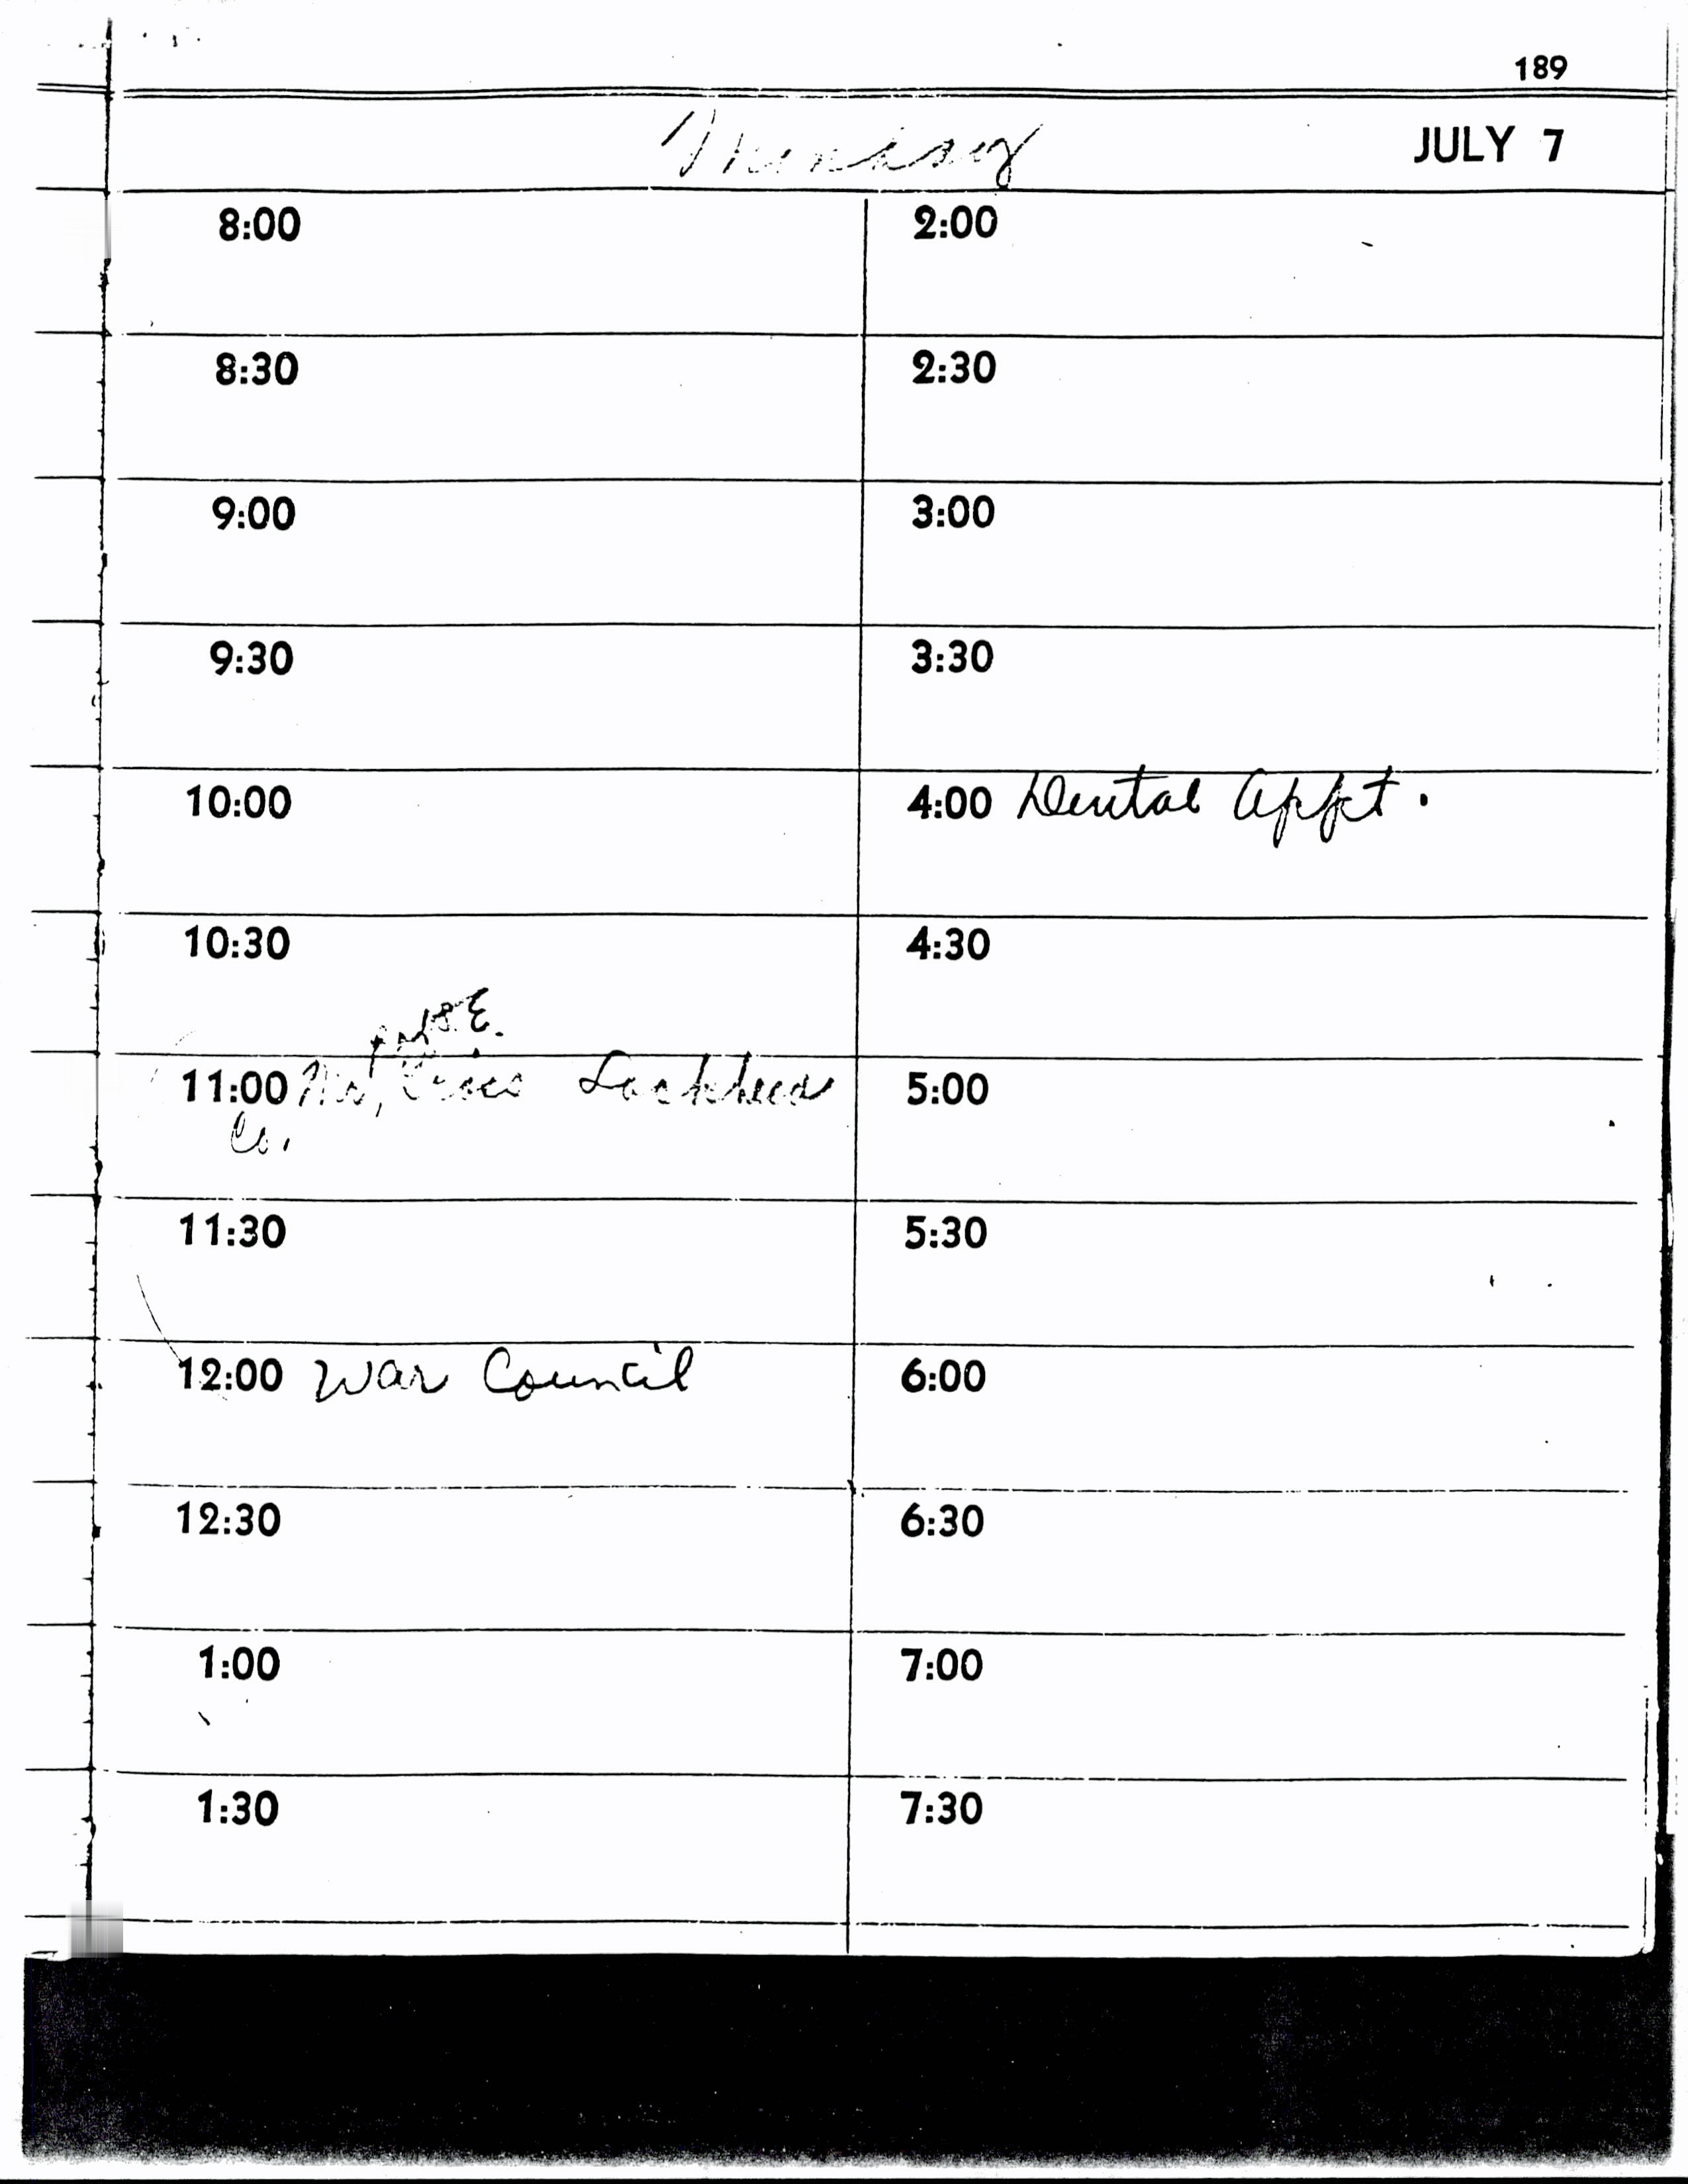 189
JULY 7
8:00
8:30
9:00
9:30
10:00
10:30
11:00 Mr. Lockheed
Co.
11:30
12:00 War Council
12:30
1:00
1:30
2:00
2:30
3:00
3:30
4:00 Dental Appt.
4:30
5:00
5:30
6:00
6:30
7:00
7:30